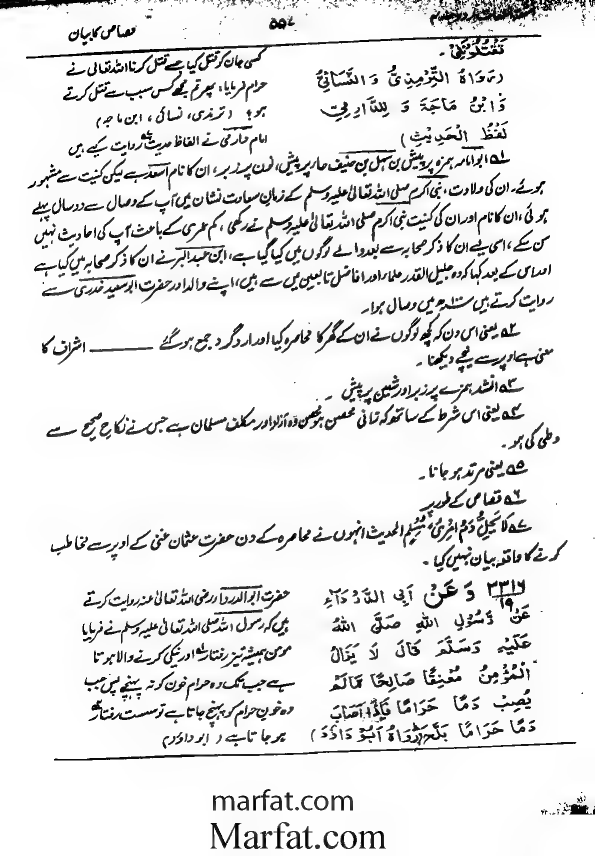 ۵۵۷
قصاص کا بیان
تَقْتُلُوْنَنِیْ۔
(رَوَاہُ التِّرْمِذِیُّ وَالنَّسَائِیُّ
وَابْنُ مَاجَۃَ وَ لِلدَّارِمِیِّ
لَفْظُ الْحَدِیْثِ)
کسی جان کو قتل کیا جسے قتل کرنا اللہ تعالیٰ نے
حرام فرمایا، پھر تم مجھے کس سبب سے قتل کرتے
ہو؟ (ترمذی، نسائی، ابن ماجہ)
امام دارمی نے الفاظ حدیث روایت کیے ہیں
۵۱ ابو امامہ ہمزہ پر پیش بن سہل بن حنیف حا پر پیش، نون پر زبر، ان کا نام اسعد ہے لیکن کنیت سے مشہور
ہوئے۔ ان کی ولادت، نبی اکرم صلی اللہ تعالیٰ علیہ وسلم کے زمان سعادت نشان میں آپ کے وصال سے دو سال پہلے
ہوئی، ان کا نام اور ان کی کنیت نبی اکرم صلی اللہ تعالیٰ علیہ وسلم نے رکھی، کم عمری کے باعث آپ کی احادیث نہیں
سن سکے، اسی لیے ان کا ذکر صحابہ سے بعد والے لوگوں میں کیا گیا ہے، ابن عبدالبر نے ان کا ذکر صحابہ میں کیا ہے
اور اس کے بعد کہا کہ وہ جلیل القدر علماء اور افاضل تابعین میں سے ہیں، اپنے والد اور حضرت ابو سعید خدری سے
روایت کرتے ہیں ۱۰۰ھ میں وصال ہوا۔
۵۲ یعنی اس دن کہ کچھ لوگوں نے ان کے گھر کا محاصرہ کیا اور ارد گرد جمع ہو گئے ——— اشراف کا
معنی ہے اوپر سے نیچے دیکھنا۔
۵۳ انشد ہمزے پر زبر اور شین پر پیش۔
۵۴ یعنی اس شرط کے ساتھ کہ زانی محصن ہو محصن وہ آزاد اور مکلف مسلمان ہے جس نے نکاح صحیح سے
وطی کی ہو۔
۵۵ یعنی مرتد ہو جانا۔
۵۶ قصاص کے طور پر
۵۷ لَا یَحِلُّ دَمُ امْرِیٍٔ مُسْلِمٍ الحدیث انہوں نے محاصرہ کے دن حضرت عثمان غنی کے اوپر سے مخاطب
کرنے کا واقعہ بیان نہیں کیا۔
۳۳۱۶ / ۱۹ وَعَنْ اَبِی الدَّرْدَاءِ
عَنْ رَسُوْلِ اللہِ صَلَّی اللہُ
عَلَیْہِ وَسَلَّمَ قَالَ لَا یَزَالُ
الْمُؤْمِنُ مُعْنِقًا صَالِحًا مَّا لَمْ
یُصِبْ دَمًا حَرَامًا فَاِذَا اَصَابَ
دَمًا حَرَامًا بَلَّحَ (رَوَاہُ اَبُوْ دَاوٗدَ)
حضرت ابو الدرداء رضی اللہ تعالیٰ عنہ روایت کرتے
ہیں کہ رسول اللہ صلی اللہ تعالیٰ علیہ وسلم نے فرمایا
مومن ہمیشہ تیز رفتار اور نیکی کرنے والا ہوتا
ہے جب تک وہ حرام خون کو نہ پہنچے پس جب
وہ خون حرام کو پہنچ جاتا ہے تو سست رفتار
ہو جاتا ہے (ابو داؤد)
marfat.com
Marfat.com